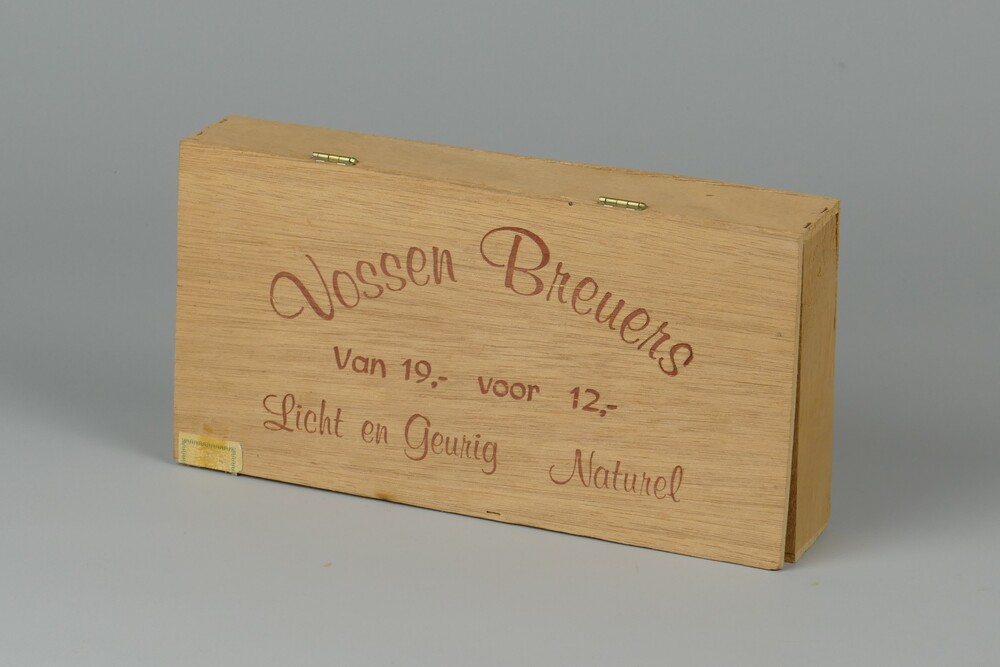 Vossen Breuers
Van 19,- voor 12,-
Licht en Geurig Naturel